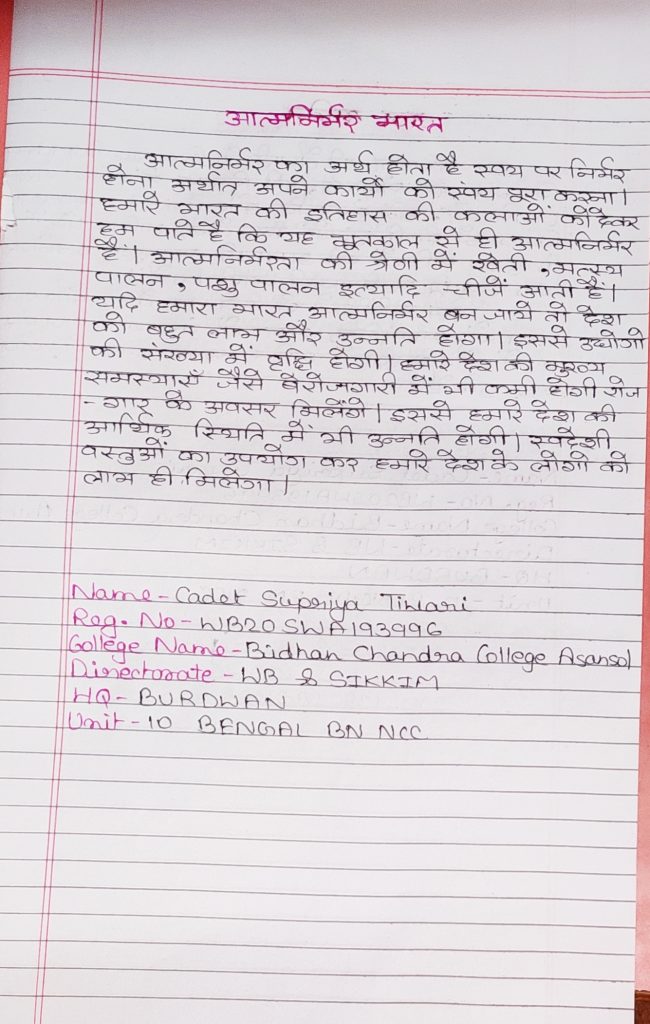 आत्मनिर्भर भारत
आत्मनिर्भर का अर्थ होता है स्वय पर निर्भर
होना अर्थात अपने कार्यों को स्वंय पूरा करना।
हमारे भारत की इतिहास की कलाओं को देकर
हम पाते है कि यह भूतकाल से ही आत्मनिर्भर
है। आत्मनिर्भरता की श्रेणी में खेती, मत्स्य
पालन, पशु पालन इत्यादि चीजें आती हैं।
यदि हमारा भारत आत्मनिर्भर बन जाये तो देश
को बहुत लाभ और उन्नति होगा। इससे उद्योगो
की संख्या में वृद्धि होगी। हमारे देश की मुख्य
समस्याएँ जैसे बेरोजगारी में भी कमी होगी रोज
- गार के अवसर मिलेंगे। इससे हमारे देश की
आर्थिक स्थिति में भी उन्नति होगी। स्वदेशी
वस्तुओं का उपयोग कर हमारे देश के लोगो को
लाभ ही मिलेगा।
Name - Cadet Supriya Tiwari
Reg. No - WB20SWA193996
College Name - Bidhan Chandra College Asansol
Directorate - WB & SIKKIM
HQ - BURDWAN
Unit - 10 BENGAL BN NCC